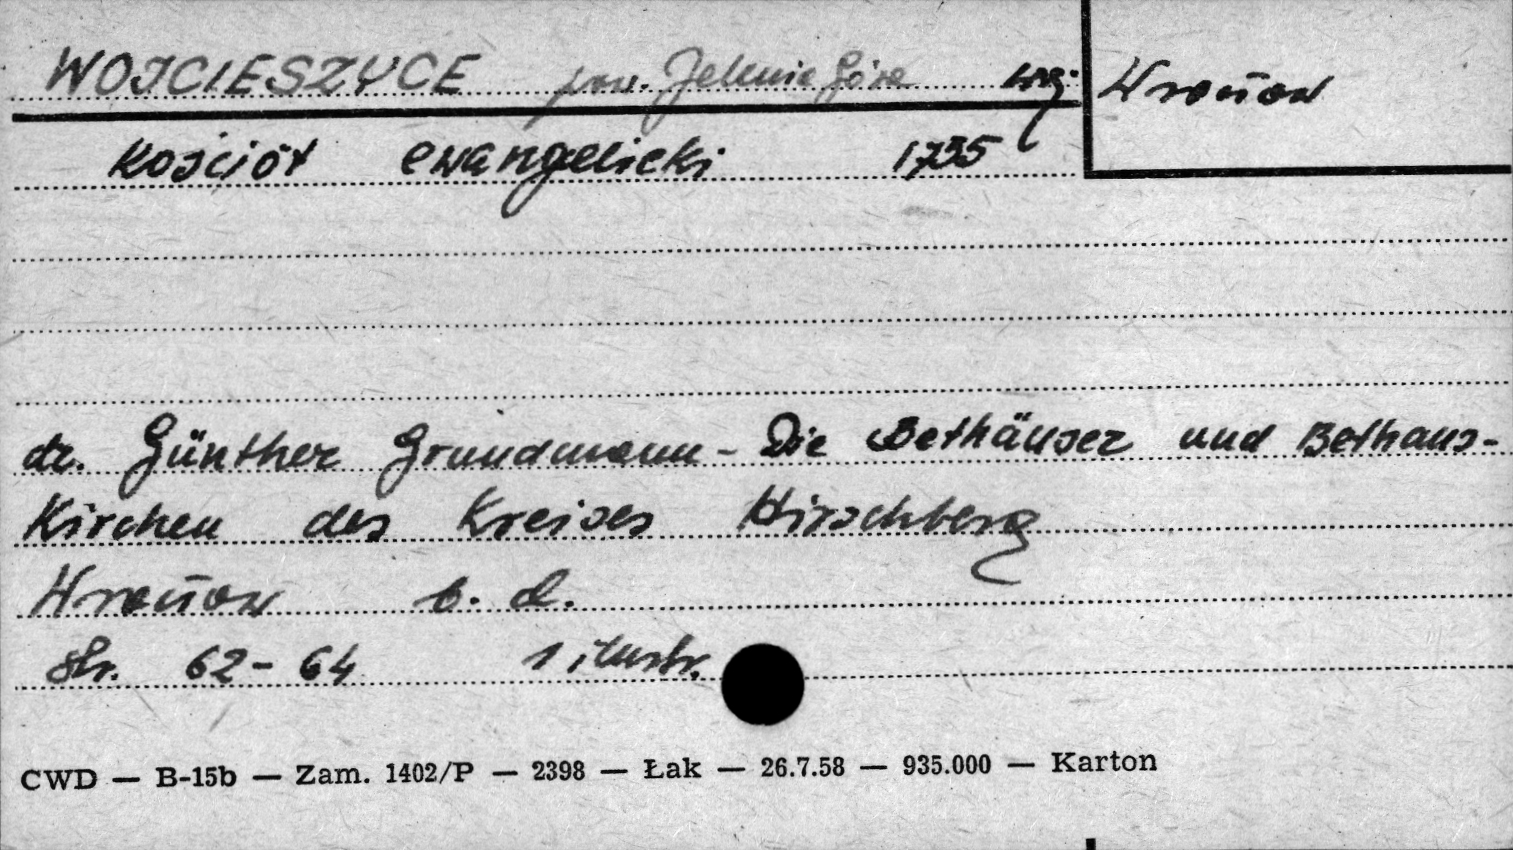 WOJCIESZYCE pow. Jelenia Góra woj. Wrocław
Kościół ewangelicki 1735
dr. Günther Grundmann - Die Bethäuser und Bethaus-
Kirchen des Kreises Hirschberg
Wrocław b. d.
str. 62-64 1 ilustr.
CWD — B-15b — Zam. 1402/P — 2398 — Łak — 26.7.58 — 935.000 — Karton